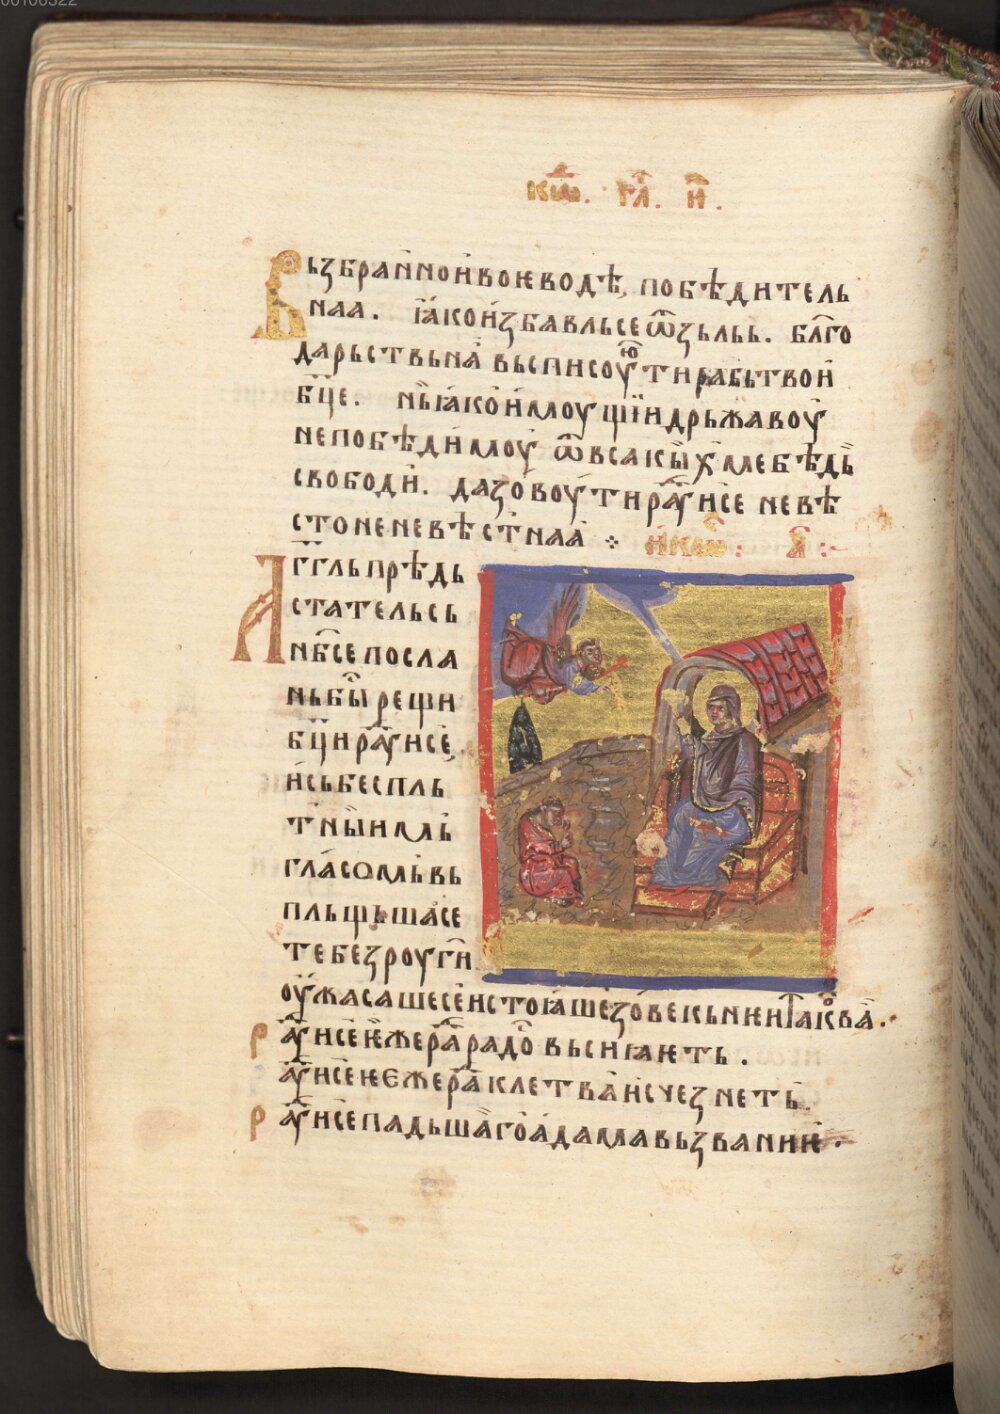 00106322
кѡⷣ. гл҃. и҃.
Вьзбраннои воѥводѣ, побѣдитель
наа. ꙗко избавльсе ѿ зьль. бл҃го
дарьствьнаа вьсписоуѥⷮ ти раби твои
бц҃е. нь ꙗко имоущїи дрьжавоу
непобѣдимоу ѿ всакыⷯ ме бѣдь
свободи. да зовоу ти раⷣуисе невѣ
сто неневѣстнаа ⁘ икѡⷭ: а҃:~
Агг҃ль прѣдь
статель сь
нбс҃е посла
нь быⷭ рещи
бц҃и раⷣуисе,
и сь беспль
тныим
гласомь вь
пльщьша се
те без роугы
оужаса ше се и стоꙗше зовекьнкы таковаа.
Раⷣуисе ѥѥже раⷣ радоⷭ вьсиꙗѥть.
раⷣуисе ѥѥже раⷣ клетва исчезнеть.
Раⷣуисе падьшаго адама вьзваниѥ.